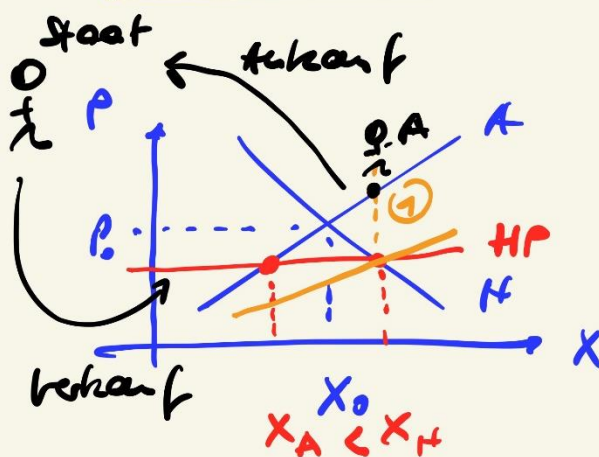 Staat
Ankauf
P
A
A
P₀
①
HP
N
X
Verkauf
X₀
X_A < X_N